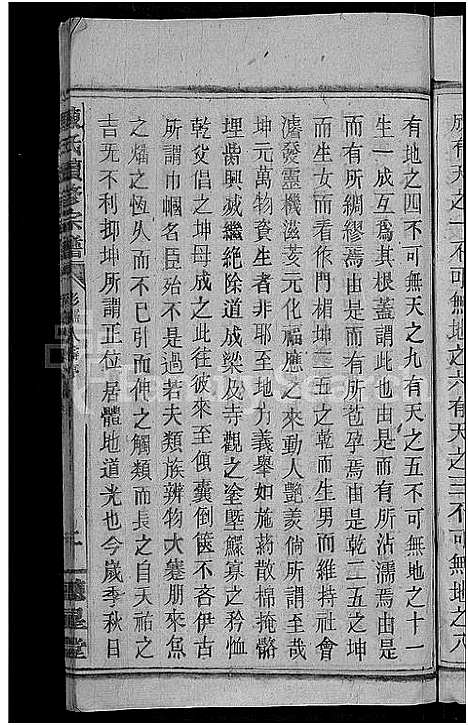 有地之四不可無天之九有天之五不可無地之十一
生一成互爲其根蓋謂此也由是而有所沾濡焉由是
而有所綢繆焉由是而有所苞孕焉由是乾二五之坤
而生女而看作門楣坤二五之乾而生男而維持社會
濬發靈機滋荄元化福應之來動人艷羨倘所謂至哉
坤元萬物資生者非耶至地方義舉如施葯散棉掩骼
埋胔興滅繼絶除道成梁及寺觀之塗塈鰥寡之矜恤
乾爻倡之坤母成之此往彼來至傾囊倒篋不吝伊古
所謂巾幗名臣殆不是過若夫類族辨物大蹇朋來魚
之燔之恆久而已引而伸之觸類而長之自天祐之
吉无不利抑坤所謂正位居體地道光也今歲季秋日
成有天之一不可無地之六有天之三不可無地之八
陳氏續修宗譜